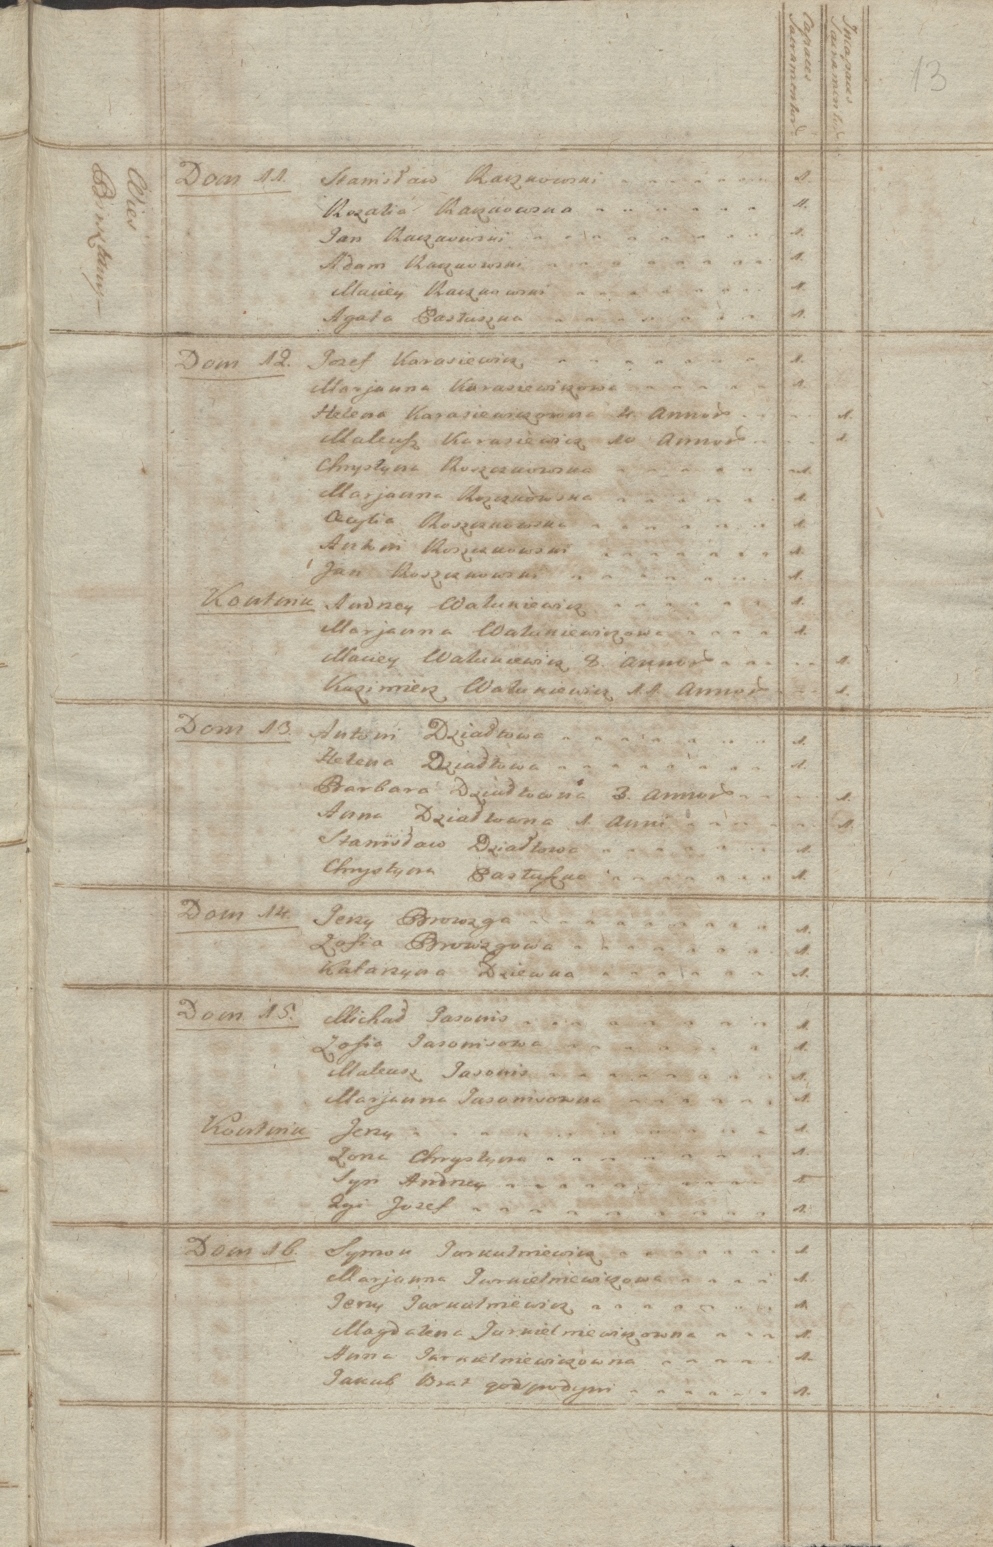 Capaces Sacramentor
Incapaces Sacramentor
13
Wieś
Dom 11. Stanisław Raczkowski 1.
Rozalia Raczkowska 1.
Jan Raczkowski 1.
Adam Raczkowski 1.
Maciey Raczkowski 1.
Agata Pastuszka 1.
Dom 12. Jozef Karasiewicz 1.
Marjanna Karasiewiczowa 1.
Helena Karasiewiczowna 4. Annor 1.
Mateusz Karasiewicz 10 Annor 1.
Chrystyna Roszkowska 1.
Marjanna Roszkowska 1.
Roszkowska 1.
Antoni Roszkowski 1.
Jan Roszkowski 1.
Andrzey Watukiewicz 1.
Marjanna Watukiewiczowa 1.
Maciey Watukiewicz 8. annor 1.
Kazimierz Watukiewicz 11 Annor 1.
Dom 13. Antoni Dziadtowa 1.
Helena Dziadtowa 1.
Barbara Dziadtowna 3. annor 1.
Anna Dziadtowna 1 Anni 1.
Stanisław Dziadtowa 1.
Chrystyna Pastuszka 1.
Dom 14. Jerzy Browzga 1.
Zofia Browzgowa 1.
Katarzyna Dziewka 1.
Dom 15. Michał Jasonis 1.
Zofia Jasonisowa 1.
Mateusz Jasonis 1.
Marjanna Jasonisowna 1.
Jerzy 1.
Zona Chrystyna 1.
Syn Andrzey 1.
Jozef 1.
Dom 16. Symon Jurkielniewicz 1.
Marjanna Jurkielniewiczowa 1.
Jerzy Jurkielniewicz 1.
Magdalena Jurkielniewiczowna 1.
Anna Jurkielniewiczowna 1.
Jakub Brat gospodyni 1.